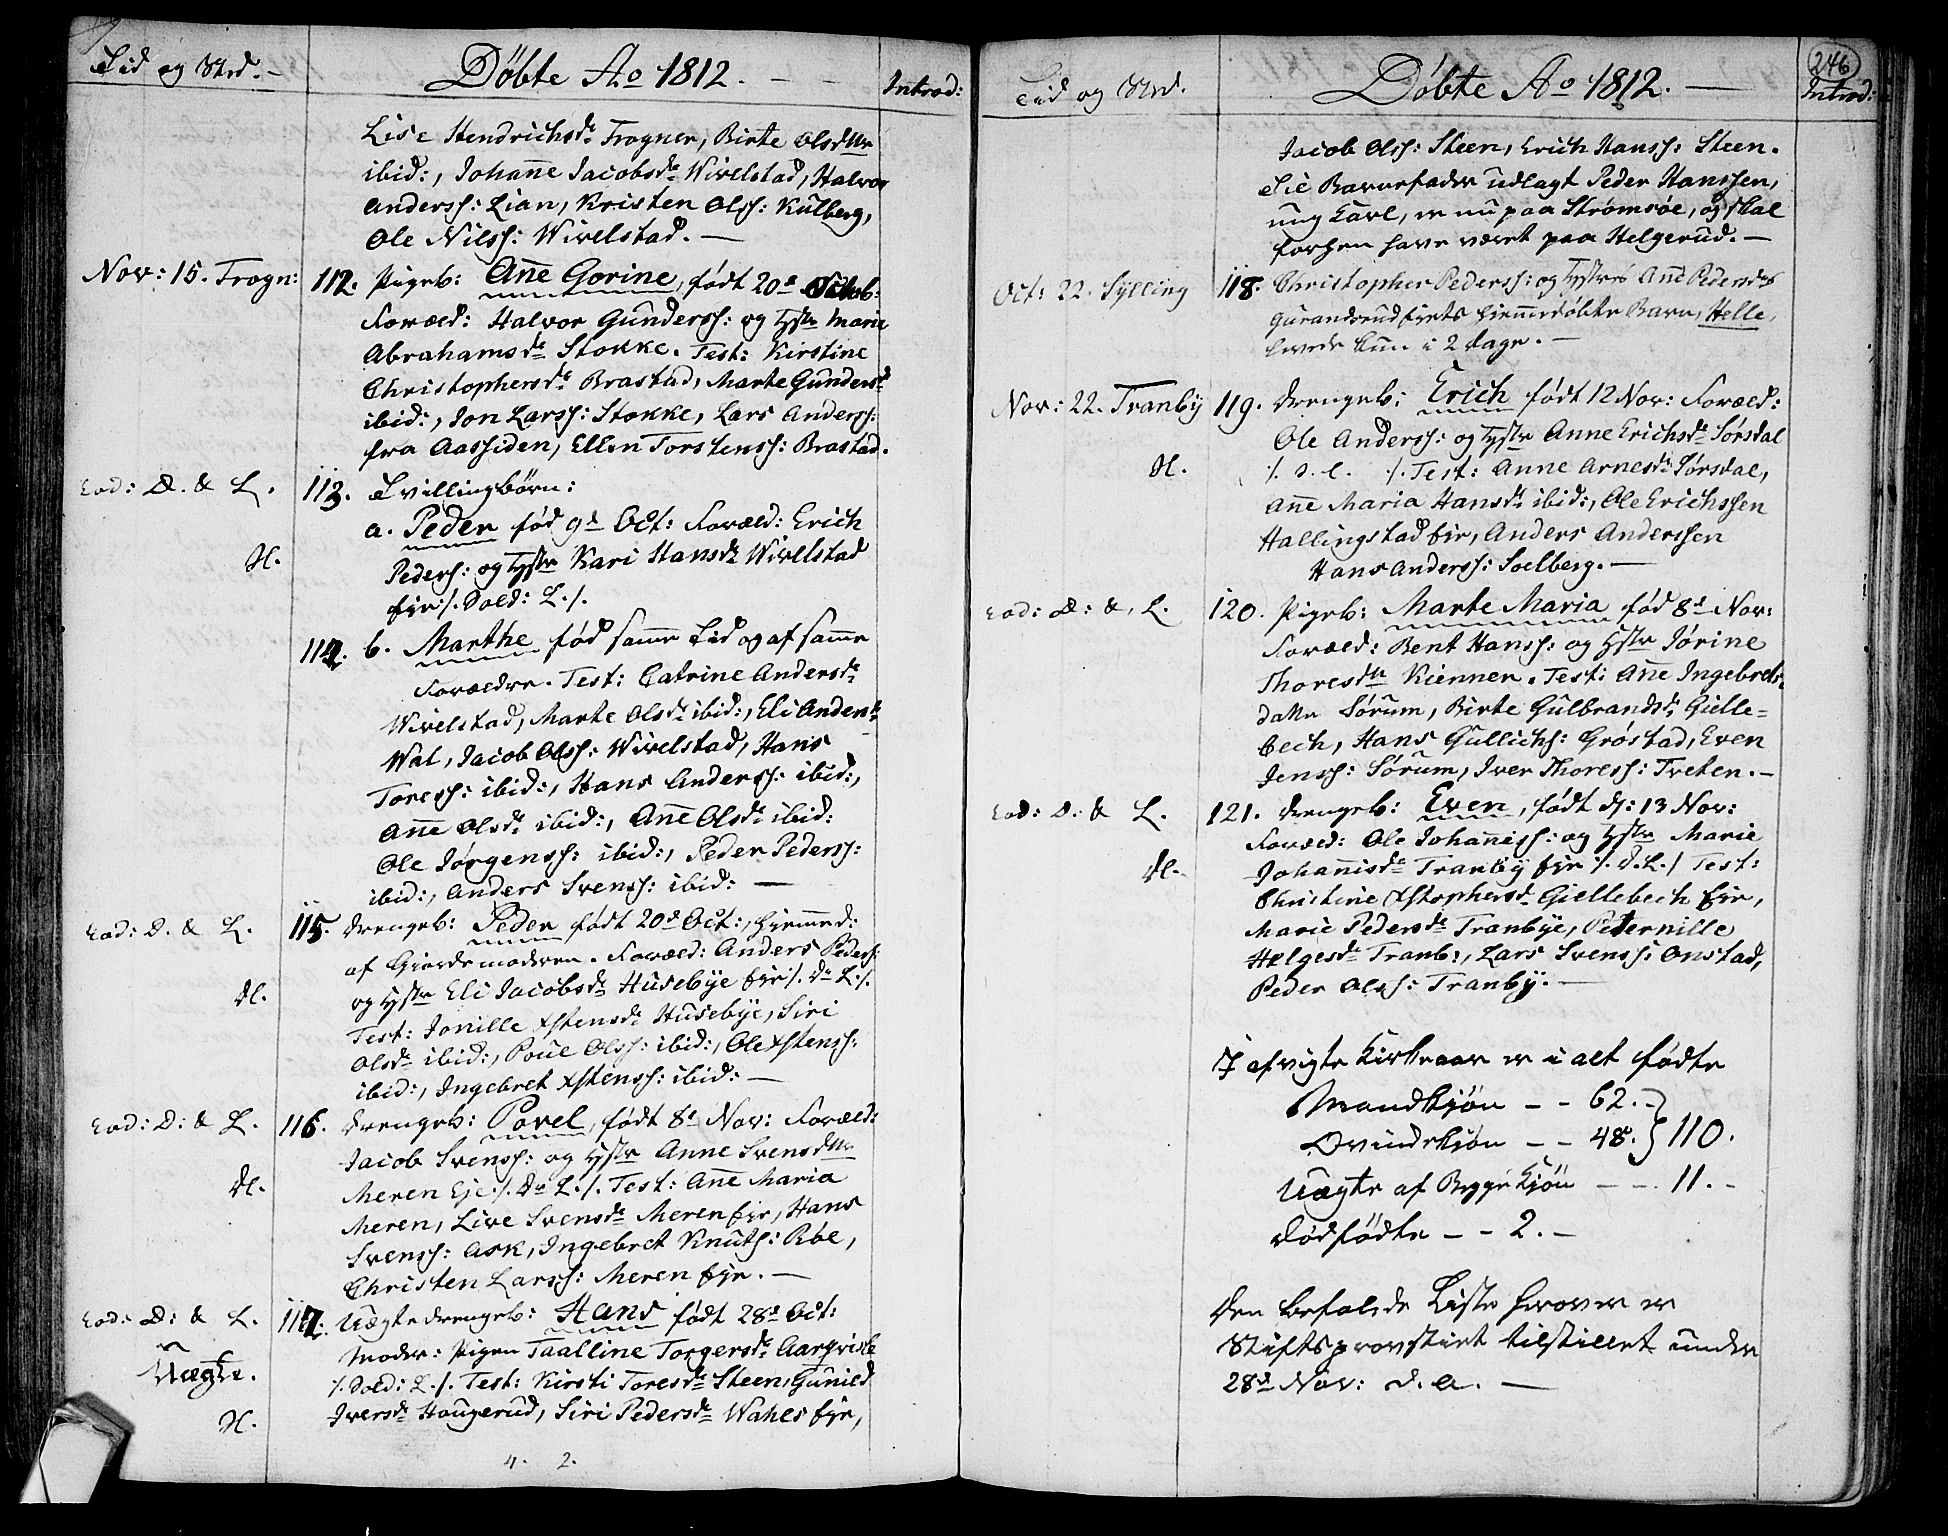 Tid og Sted.
Døbte Ao 1812.
Introd:
Lise Hendrichsdr Trogner, Birte Olsdttr
ibid:, Johanne Jacobsdr Wivelstad, Halvor
Anders: Lian, Kristen Ols: Kulberg,
Ole Nils: Wivelstad.
Nov: 15. Trogn: 112. Pigeb: Anne Gorine, født 20de Octob:
Foræld: Halvor Gunders: og Hstr Marie
Abrahamsdr Stokke. Test: Kirstine
Christophersdr Brastad, Marte Gundersdr
ibid:, Jon Lars: Stokke, Lars Anders:
fra Aassiden, Ellen Torstens: Brastad.
Eod: D. & L. 113. Tvillingbørn:
a. Peder fød 9de Oct: Foræld: Erich
Peders: og Hstr Kari Hansdr Wivelstad
eje ·/. Sold: L./.
114. b. Marthe fød samme Tid og af samme
Forældre. Test: Catrine Andersdr
Wivelstad, Marte Olsdr ibid:, Eli Andersdr
Wal, Jacob Ols: Wivelstad, Hans
Tores: ibid:, Hans Anders: ibid:,
Anne Olsdr ibid:, Anne Olsdr ibid:
Ole Jørgens: ibid:, Peder Peders:
ibid:, Anders Svens: ibid:
Eod: D. & L. 115. Drengeb: Peder født 20de Oct:, hjemmed:
af Giordemoderen. Foræld: Anders Peders:
og Hstr Eli Jacobsdr Husebye eje ·/. Do L./.
Test: Jonille Xstensdr Husebye, Siri
Olsdr ibid:, Poul Ols: ibid:, Ole Xstens:
ibid:, Ingebret Xstens: ibid:
Eod: D: & L. 116. Drengeb: Povel, født 8de Nov: Foræld:
Jacob Svens: og Hstr Anne Svensdttr
Meren Eje ·/. Do L./. Test: Anne Maria
Meren, Live Svensdr Meren eje, Hans
Svens: Ask, Ingebret Knuts: Røe,
Christen Lars: Meren eje.
Eod: D: & L. 117. Uægte Drengeb: Hans født 28de Oct:
Moder: Pigen Taalline Torgersdr Aarqvisle
Uægte.
·/. Sold: L./. Test: Kirsti Toresdr Steen, Gunild
Iversdr Haugerud, Siri Pedersdr Wahes eje,
4. 2.
246
Tid og Sted.
Døbte Ao 1812.
Introd:
Jacob Ols: Steen, Erich Hans: Steen.
Til Barnefader udlagt Peder Hanssen,
ung Karl, er nu paa Strømsøe, og skal
forhen have været paa Helgerud.
Oct: 22. Sylling 118. Christopher Peders: og Hystrs Ane Pedersdrs
Gurandsrud ejets hjemmedøbte Barn, Helle,
levede kun i 2 dage.
Nov: 22. Tranby 119. Drengeb: Erich født 12 Nov: Foræld:
Ole Anders: og Hystr Anne Erichsdr Sørsdal
·/. S. L. ·/. Test: Anne Arnesdr Sørsdal,
Anne Maria Hansdr ibid:, Ole Erichssen
Hallingstad eje, Anders Anderssen
Hans Anders: Soelberg.
Eod: D: & L. 120. Pigeb: Marte Maria fød 8de Nov:
Foræld: Bent Hans: og Hstr Jørine
Thoresdtr Kienner. Test: Anne Ingebrets-
datter Sørum, Birte Gulbrandsdr Gielle-
bech, Hans Gullichs: Grøstad, Even
Jens: Sørum, Iver Thores: Treten.
Eod: D: & L. 121. Drengeb: Even, født d: 13 Nov:
Foræld: Ole Johannis: og Hstr Marie
Johannisdr Tranby eje ·/. d. L./ Test:
Christine Xstophersd Giellebech eje,
Marie Pedersdr Tranbye, Peternille
Helgesdr Tranb:, Lars Svens: Onstad,
Peder Ols: Tranby.
I afvigte Kirkeaar er i alt fødte
Mandkjøn – – 62.
Qvindekjøn – – 48. } 110.
Uægte af Begge Kjøn – – 11.
dødfødte – – 2.
Den befalede Liste herover er
Stiftsprovstiet tilstillet under
28de Nov: d. a.